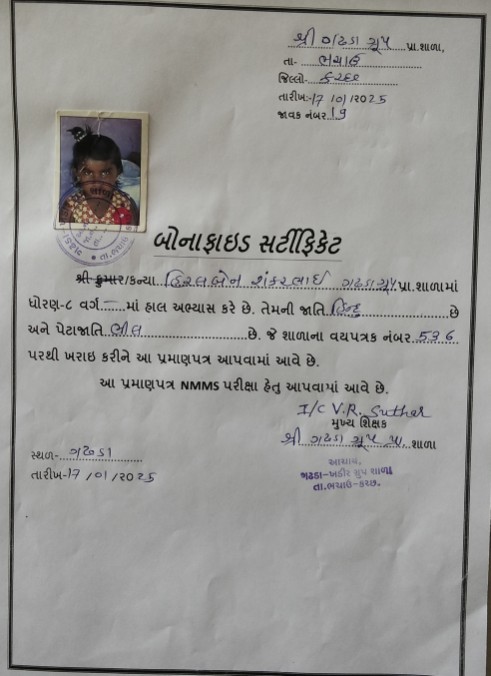 શ્રી ગઢડા ગ્રુપ પ્રા.શાળા,
તા- ભચાઉ
જિલ્લો- કચ્છ
તારીખ:-17/01/2025
જાવક નંબર 19
બોનાફાઇડ સર્ટીફિકેટ
શ્રી કુમાર/કન્યા હિરલબેન શંકરલાઇ ગઢડા ગ્રુપ પ્રા.શાળામાં
ધોરણ-૮ વર્ગ — માં હાલ અભ્યાસ કરે છે. તેમની જાતિ હિન્દુ છે
અને પેટાજાતિ ભીલ છે. જે શાળાના વયપત્રક નંબર 536
પરથી ખરાઇ કરીને આ પ્રમાણપત્ર આપવામાં આવે છે.
આ પ્રમાણપત્ર NMMS પરીક્ષા હેતુ આપવામાં આવે છે.
I/C V.R. Suthar
મુખ્ય શિક્ષક
શ્રી ગઢડા ગ્રુપ પ્રા. શાળા
સ્થળ- ગઢડા
તારીખ-17/01/2025
આચાર્ય,
ગઢડા-ખડીર ગ્રુપ શાળા
તા.ભચાઉ-કચ્છ.